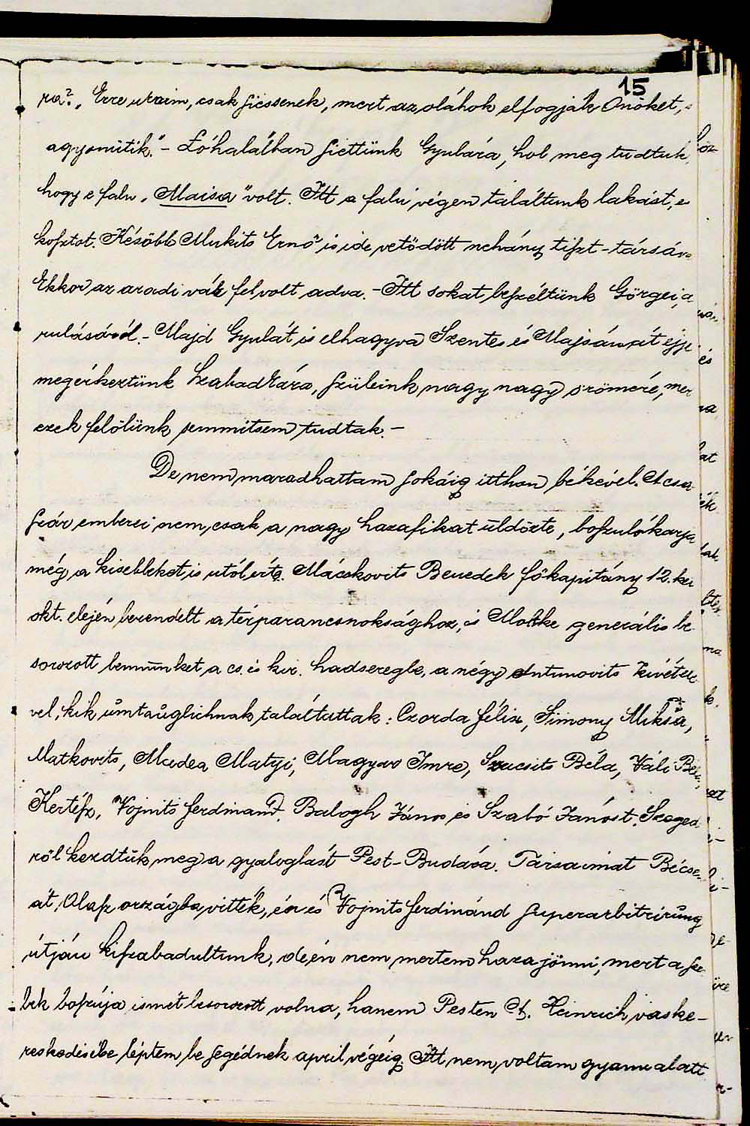 15
ra?" "Erre uraim, csak siessenek, mert az oláhok elfogják Önöket, s
agyonütik." – Lóhalálban siettünk Gyulára, hol megtudtuk
hogy e falu "Maisa" volt. Itt a falu végen találtunk lakást, e
kosztot. Később Mukits Ernő is ide vetődött nehány tiszt-társáv
Ekkor az aradi vár felvolt adva. – Itt sokat beszéltünk Görgei, á
rulásáról. – Majd Gyulát is elhagyva Szentes és Majsának éjje
megérkeztünk Szabadkára, szüleink nagy nagy örömére, mer
ezek felölünk semmitsem tudtak. –
De nem maradhattam sokáig itthon békével. A csá
szár emberei nem, csak a nagy hazafikat üldözte, boszulókarja
még a kisebbeket is utólérte. Mácskovits Benedek főkapitány 12. ke
okt. elején berendelt a térparancsnoksághoz, is Moltke generális be
sorozott bennünket a cs. és kir. hadseregbe, a négy Antunovits kivétele
vel, kik untauglichnak találtattak: Czorda félix, Simony Miksa,
Matkovits, Mudea Matyi, Magyar Imre, Szucsits Béla, Váli Bé
Kertész, Vojnits ferdinand, Balogh János és Szabó Jánost. Szeged
ről kezdtük meg a gyaloglást Pest-Budára. Társaimat Bécse
át, Olasz országba vitték, én és Vojnits ferdinánd superarbitrirung
útján kiszabadultunk, de én nem mertem haza jönni, mert a sze
bek boszúja ismét besorozott volna, hanem Pesten A. Heinrich, vaske-
reskedésébe léptem be segédnek april végéig. Itt nem voltam gyanu alatt